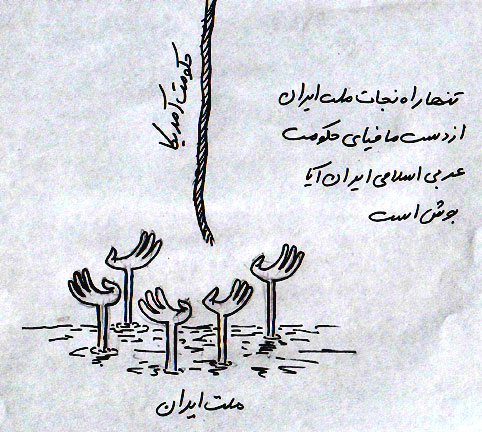 تنها راه نجات ملت ایران
از دست مافیای حکومت
عربی اسلامی ایران آیا
بوش است
حکومت آمریکا
ملت ایران